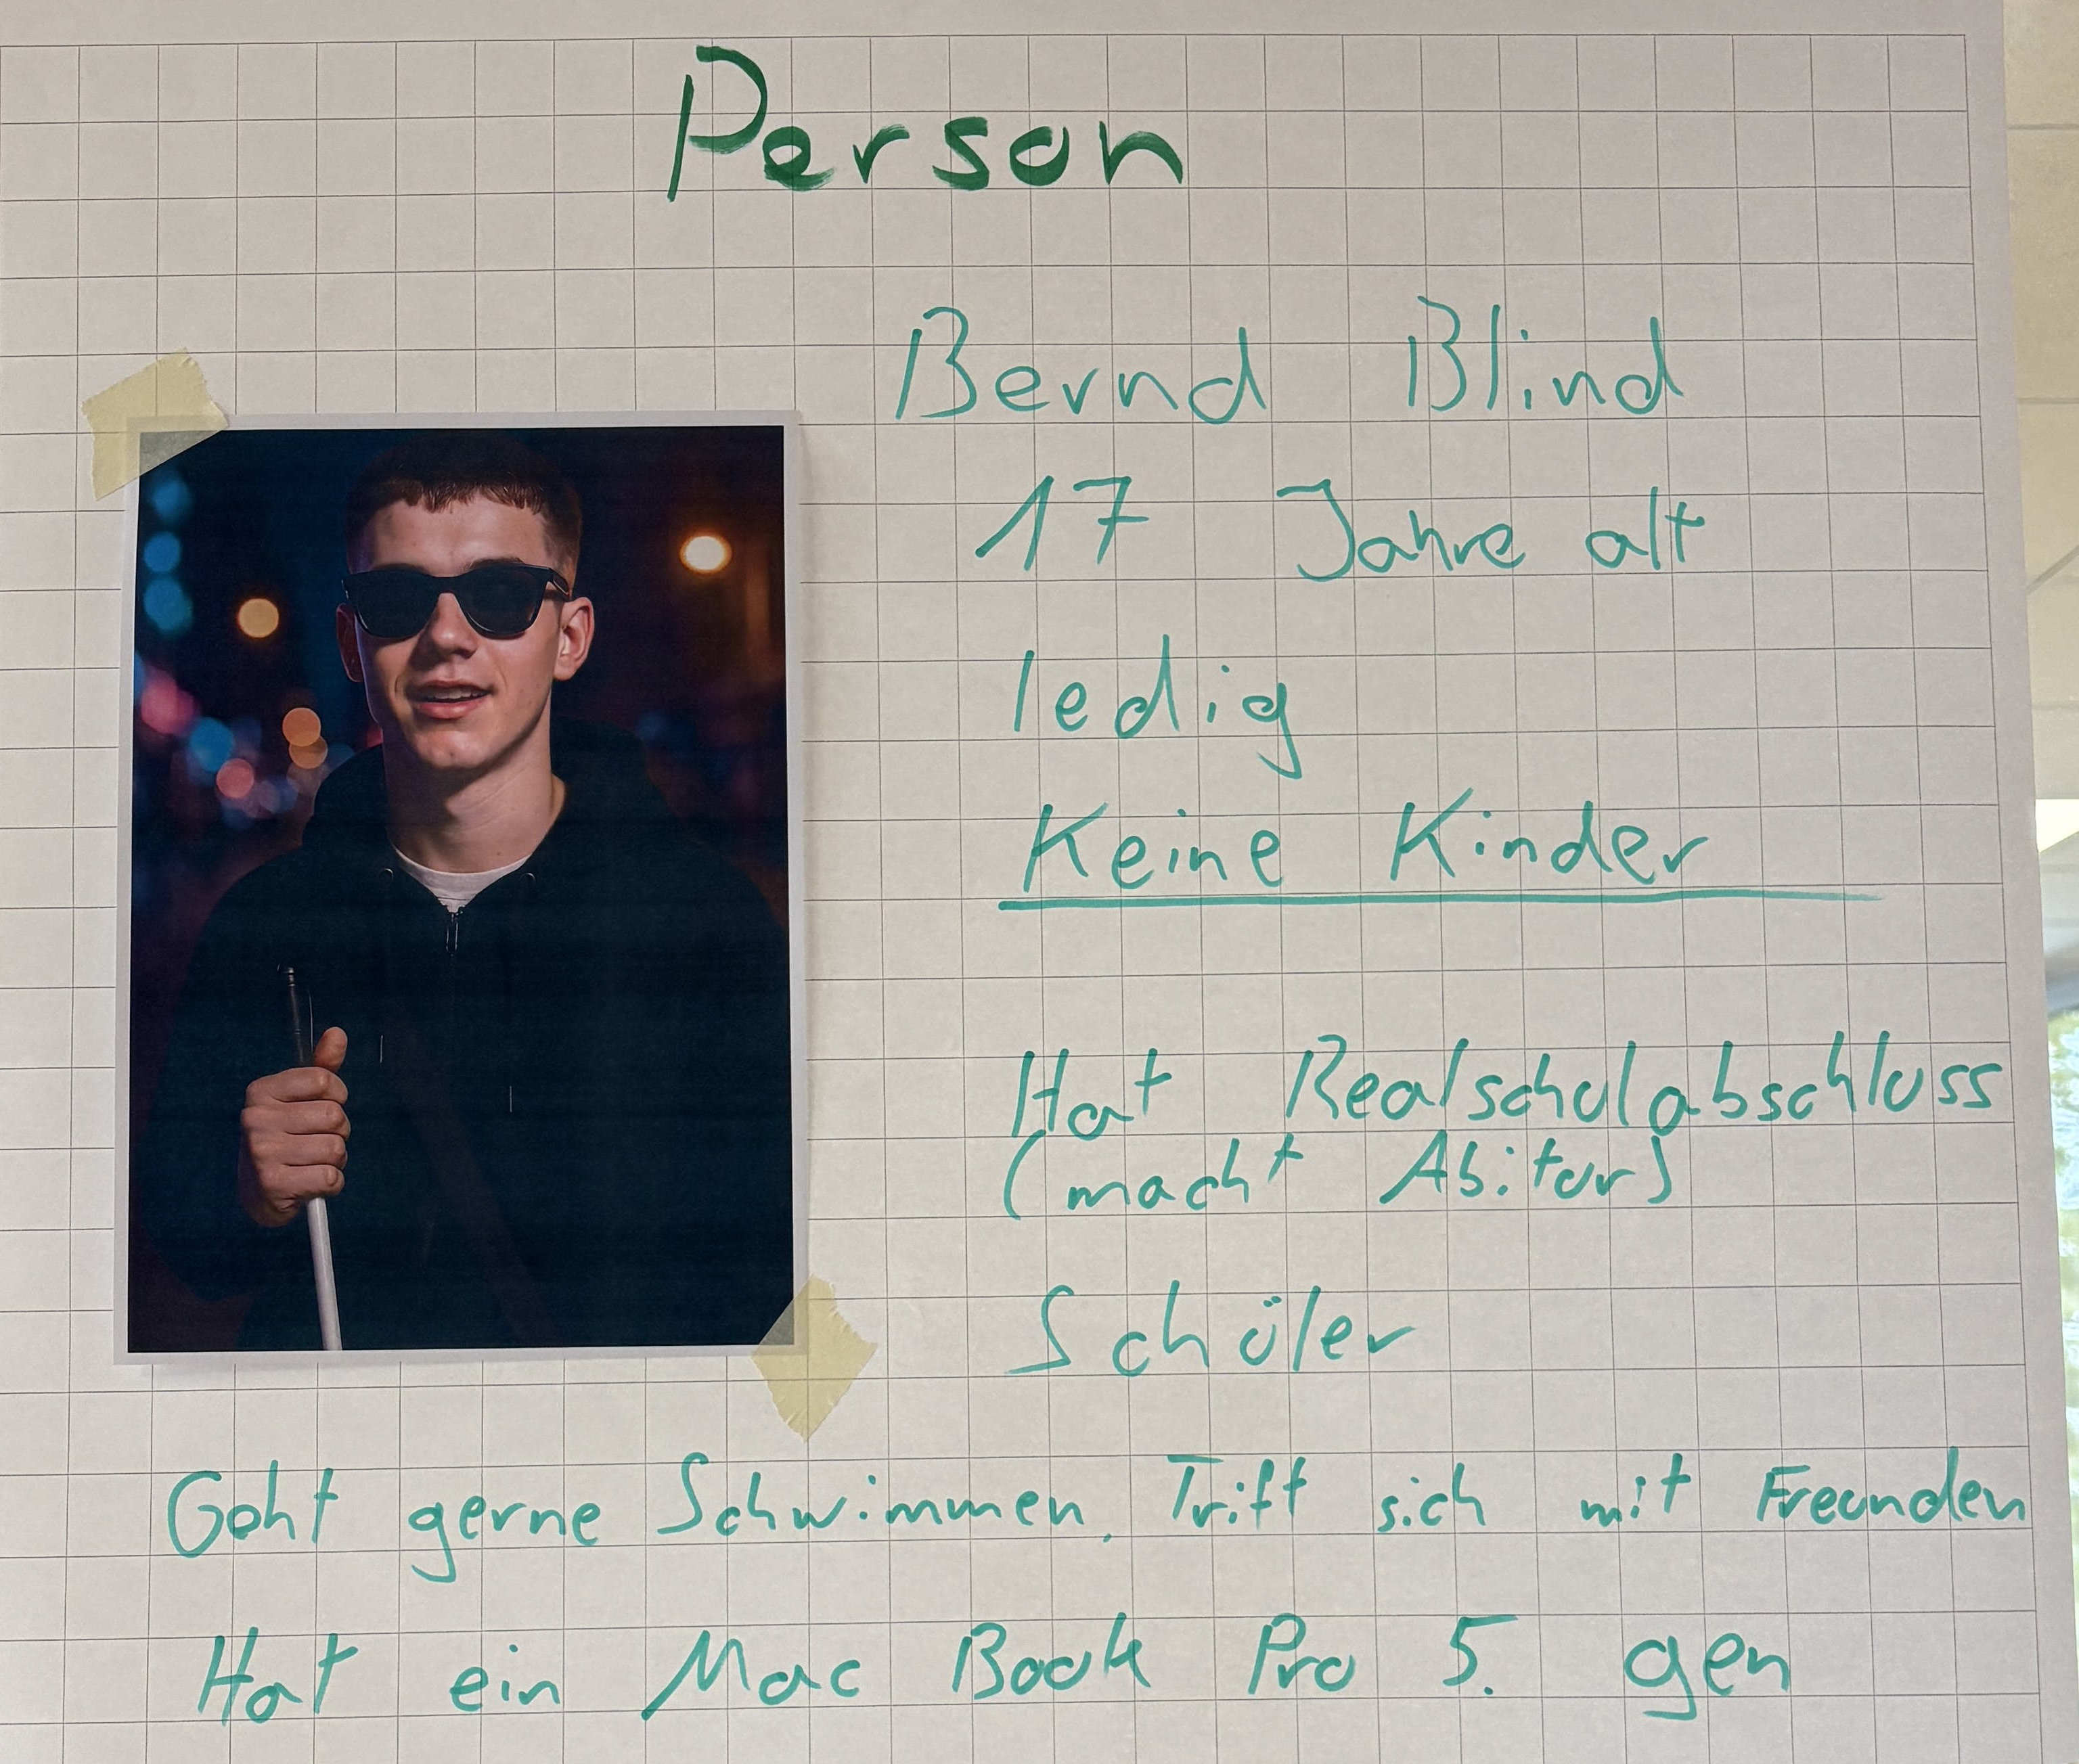 Person
Bernd Blind
17 Jahre alt
ledig
Keine Kinder
Hat Realschulabschluss
(macht Abitur)
Schüler
Geht gerne Schwimmen, Trift sich mit Freunden
Hat ein Mac Book Pro 5. gen